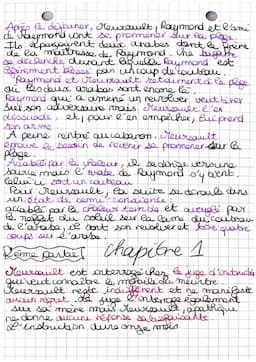 Après le déjeuner, Meursault, Raymond et l'ami
de Raymond vont se promener sur la plage.
Ils aperçoivent deux arabes dont le frère
de la maîtresse de Raymond. Une bagarre
se déclenche durant laquelle Raymond est
légèrement blessé par un coup de couteau.
Raymond et Meursault retournent à la plage
où les deux arabes sont encore là.
Raymond qui a amené un revolver veut tirer
sur son adversaire mais Meursault l'en
dissuade, et, pour l'en empêcher, lui prend
son arme.
A peine rentré au cabanon, Meursault
éprouve le besoin de revenir se promener sur la
plage.
Accablé par la chaleur, il se dirige vers une
source mais l'arabe de Raymond s'y tient.
Celui-ci sort un couteau.
Pour Meursault, la suite se déroule dans
un état de semi-conscience :
accablé par la chaleur terrible et aveuglé par
le reflet du soleil sur la lame du couteau
de l'arabe, il sort son revolver et tire quatre
coups sur l'arabe.
2ème partie Chapitre 1
Meursault est interrogé chez le juge d'instruction
qui veut connaître le mobile du meurtre.
Meursault reste indifférent et ne manifeste
aucun regret. Le juge l'interroge également
sur sa mère mais Meursault, apathique
ne donne aucune réponse satisfaisante.
L'instruction dure onze mois.